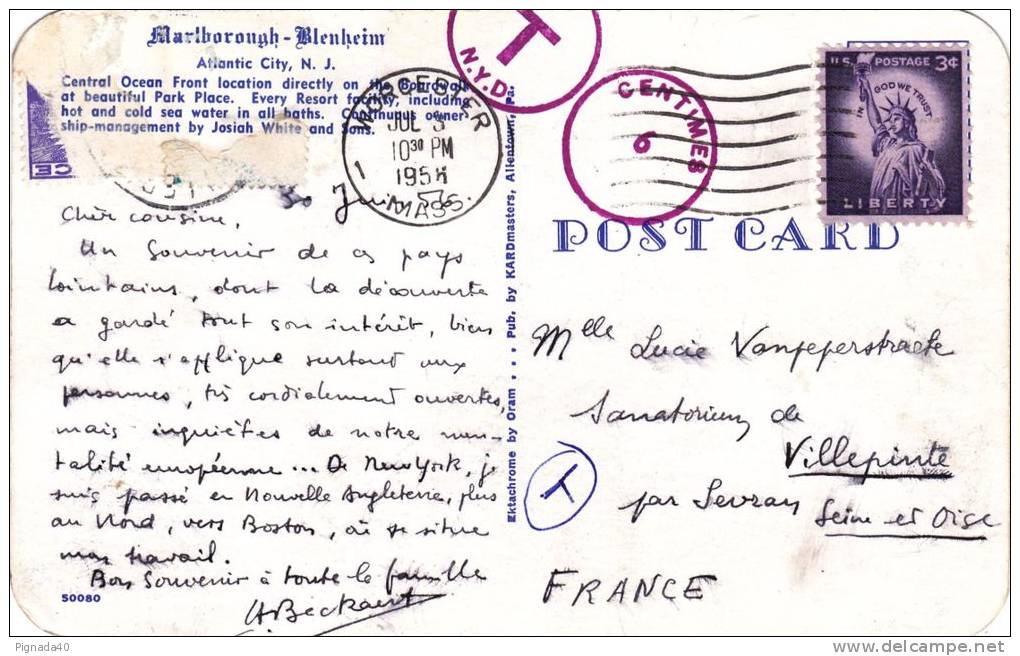 Marlborough-Blenheim
Atlantic City, N. J.
Central Ocean Front location directly on the Boardwalk
at beautiful Park Place. Every Resort facility, including
hot and cold sea water in all baths. Continuous owner-
ship-management by Josiah White and Sons.
T
N.Y.D.
WORCESTER
JUL 3
10 30 PM
1958
MASS.
CENTIMES
6
U.S. POSTAGE 3¢
IN GOD WE TRUST
LIBERTY
POST CARD
30 Juin
Chère cousine,
Un Souvenir de ces pays
lointains, dont la découverte
a gardé tout son intérêt, bien
qu'elle s'applique surtout aux
personnes, très cordialement ouvertes,
mais inquiètes de notre men-
talité européenne... De New York, je
suis passé en Nouvelle Angleterre, plus
au Nord, vers Boston, où se situe
mon travail.
Bon Souvenir à toute la famille
Beckaert
50080
Ektachrome by Oram ... Pub. by KARDmasters, Allentown, Pa.
Mlle Lucie Vanpeperstraete
Sanatorium de
Villepinte
par Sevran
Seine et Oise
FRANCE
T
Pignada40
www.delcampe.net